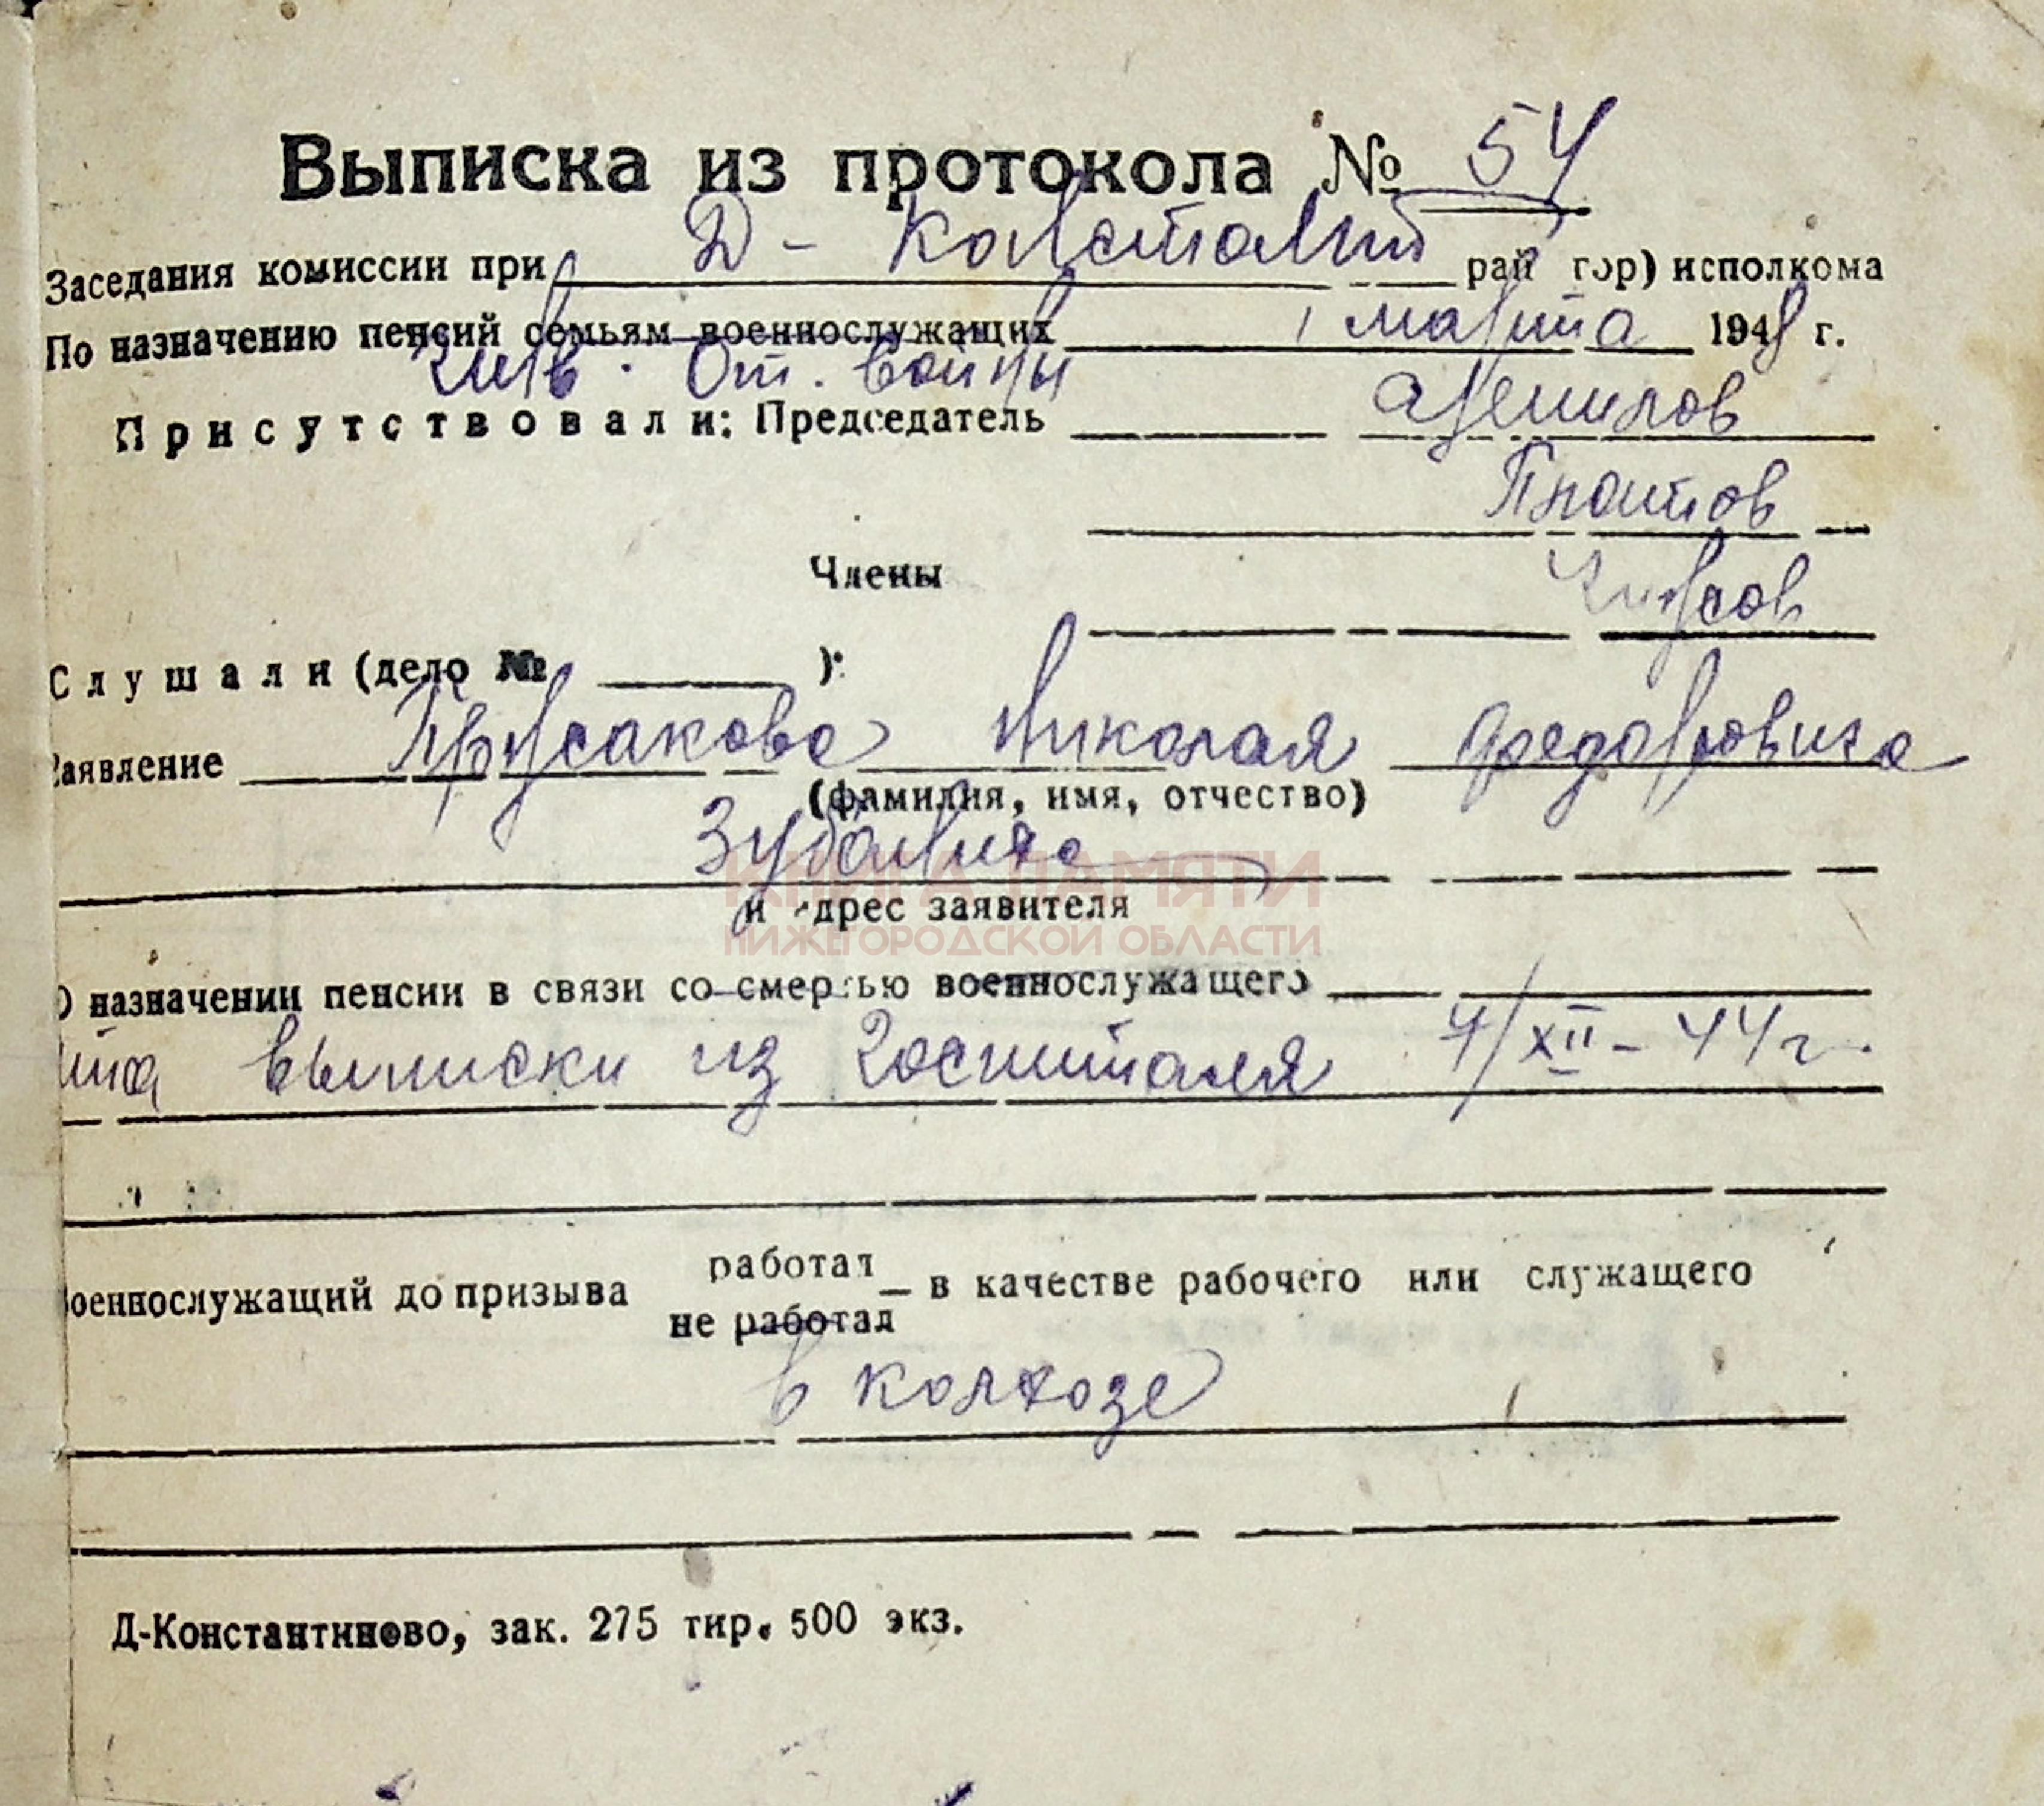 Выписка из протокола № 54
Заседания комиссии при Д-Констант рай гор) исполкома
По назначению пенсий семьям военнослужащих 1 марта 1948 г.
инв. От. войны
Присутствовали: Председатель
Платов
Члены
Слушали (дело № ):
аявление Прусакова Николая Федоровича
(фамилия, имя, отчество)
КНИГА ПАМЯТИ
и дрес заявителя
НИЖЕГОРОДСКОЙ ОБЛАСТИ
О назначении пенсии в связи со смертью военнослужащего
та выписки из госпиталя 7/XII-44 г.
оеннослужащий до призыва работал — в качестве рабочего или служащего
не работал
в колхозе
Д-Константиново, зак. 275 тир. 500 экз.